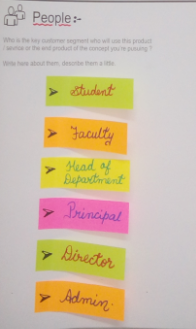 People :-
Who is the key customer segment who will use this product
/ service or the end product of the concept you're pursuing ?
Write here about them, describe them a little.
➤ Student
➤ Faculty
➤ Head of
Department
➤ Principal
➤ Director
➤ Admin.